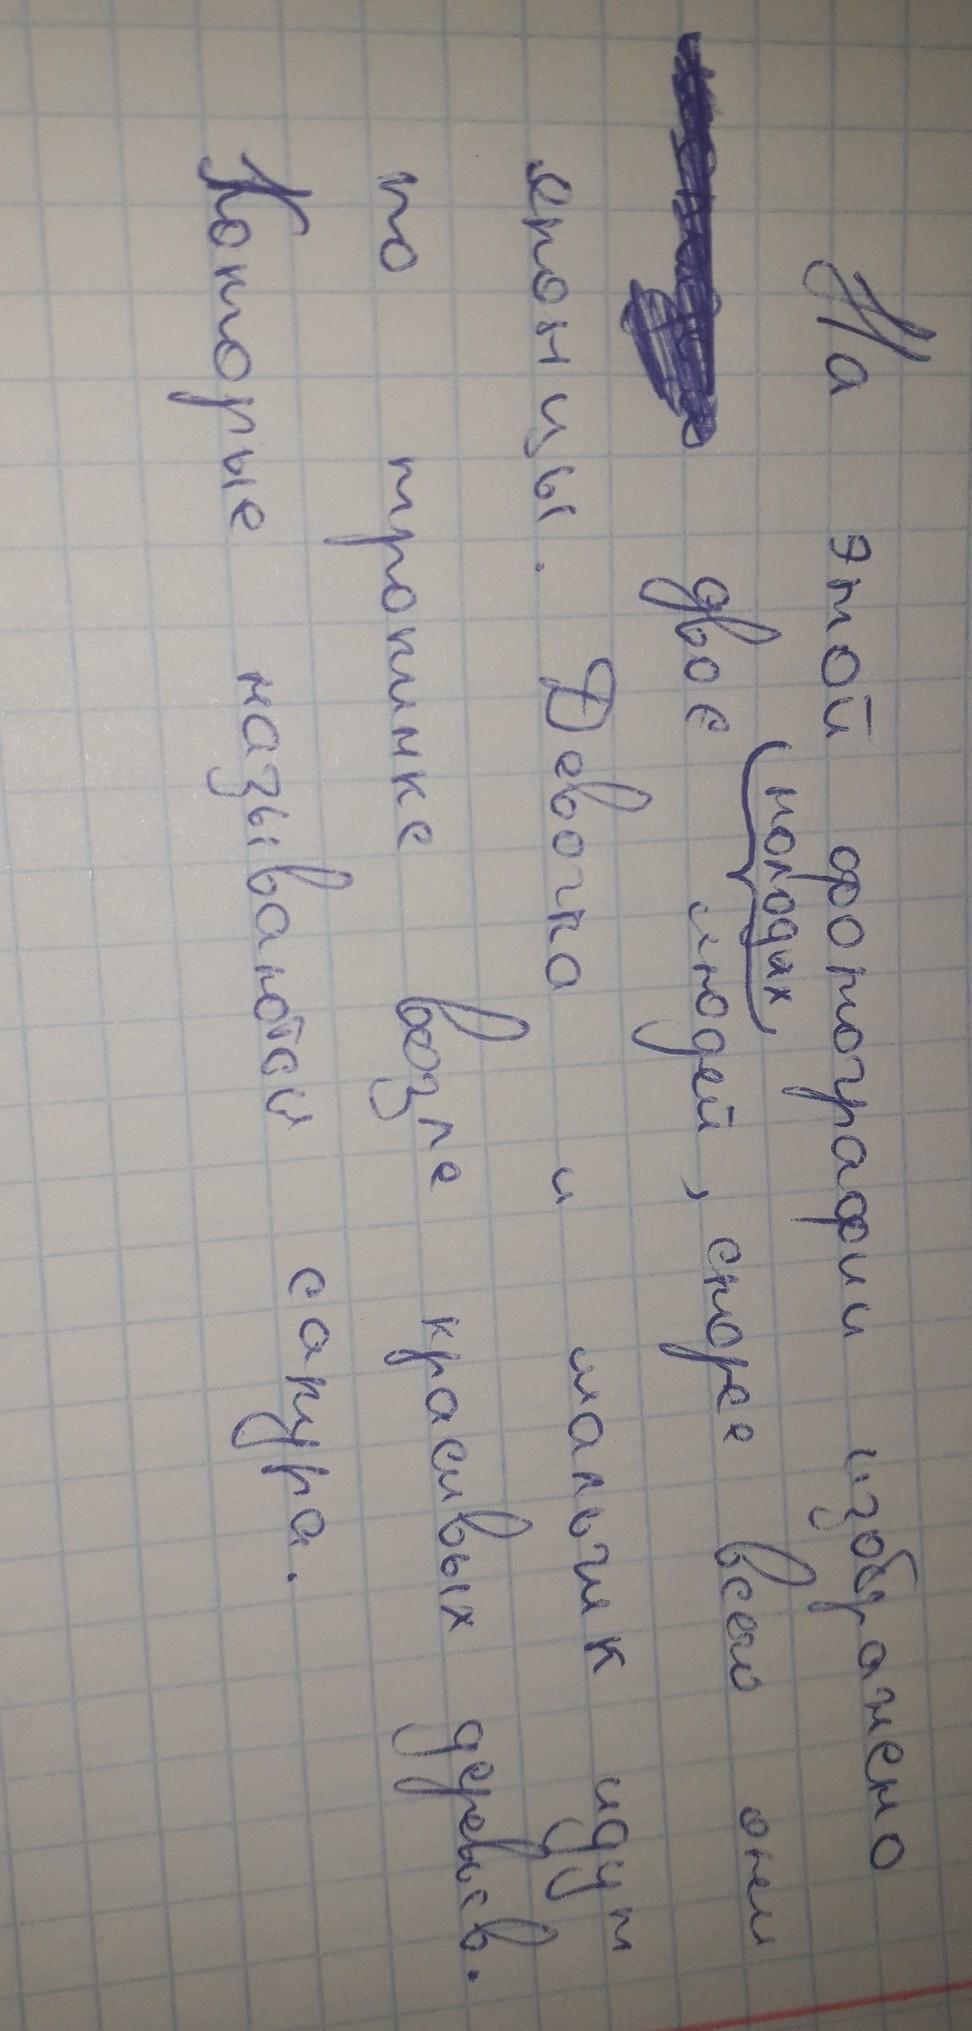 На этой фотографии изображено
молодых
двое людей, скорее всего они
японцы. Девочка и мальчик идут
по тропинке возле красивых деревьев.
Которые называются сакура.